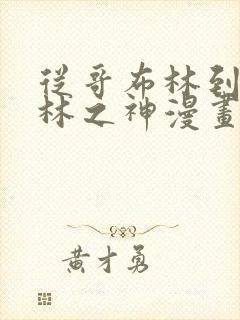 從哥布林到
林之神漫畫
黃才勇